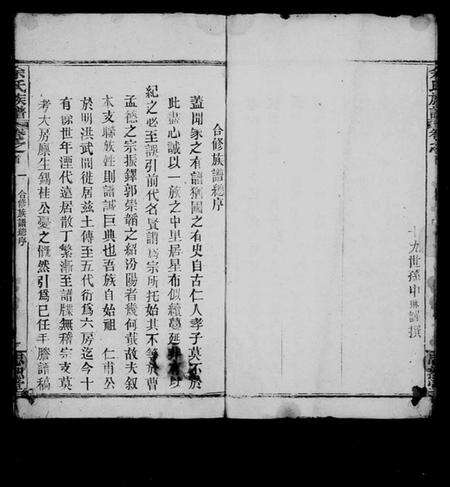 十九世孫中琳謹撰
合修族譜總序
蓋聞家之有譜猶國之有史自古仁人孝子莫不於
此盡心誠以一族之中里居星布似續蔓延非有以
紀之必至謬引前代名賢謂為宗所托始其不等於曹
孟德之宗振鐸郭崇韜之紹汾陽者幾何哉故夫叙
本支聯族姓則譜誠巨典也吾族自始祖 仁甫公
於明洪武間徙居茲土傳至五代衍為六房迄今十
有餘世年湮代遠居散丁繁漸至譜牒無稽宗支莫
考大房廩生錫桂公憂之慨然引為己任手騰譜稿
余氏族譜 卷之首
一 合修族譜總序